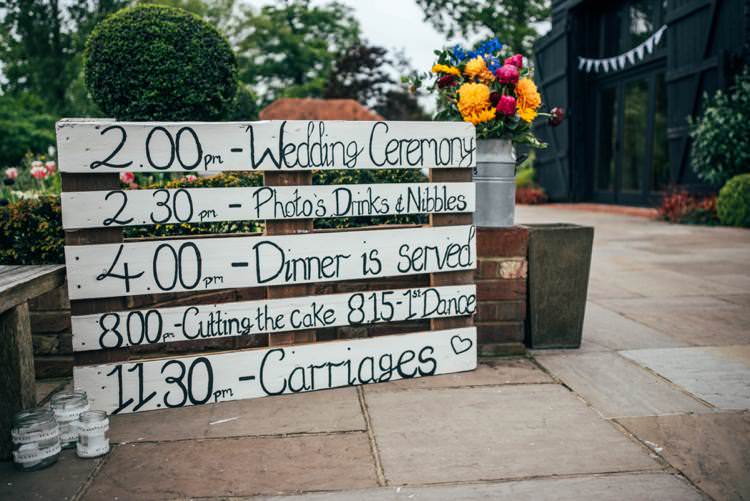 2.00pm - Wedding Ceremony
2.30pm - Photo's Drinks & Nibbles
4.00pm - Dinner is served
8.00pm - Cutting the cake 8.15 - 1st Dance
11.30pm - Carriages